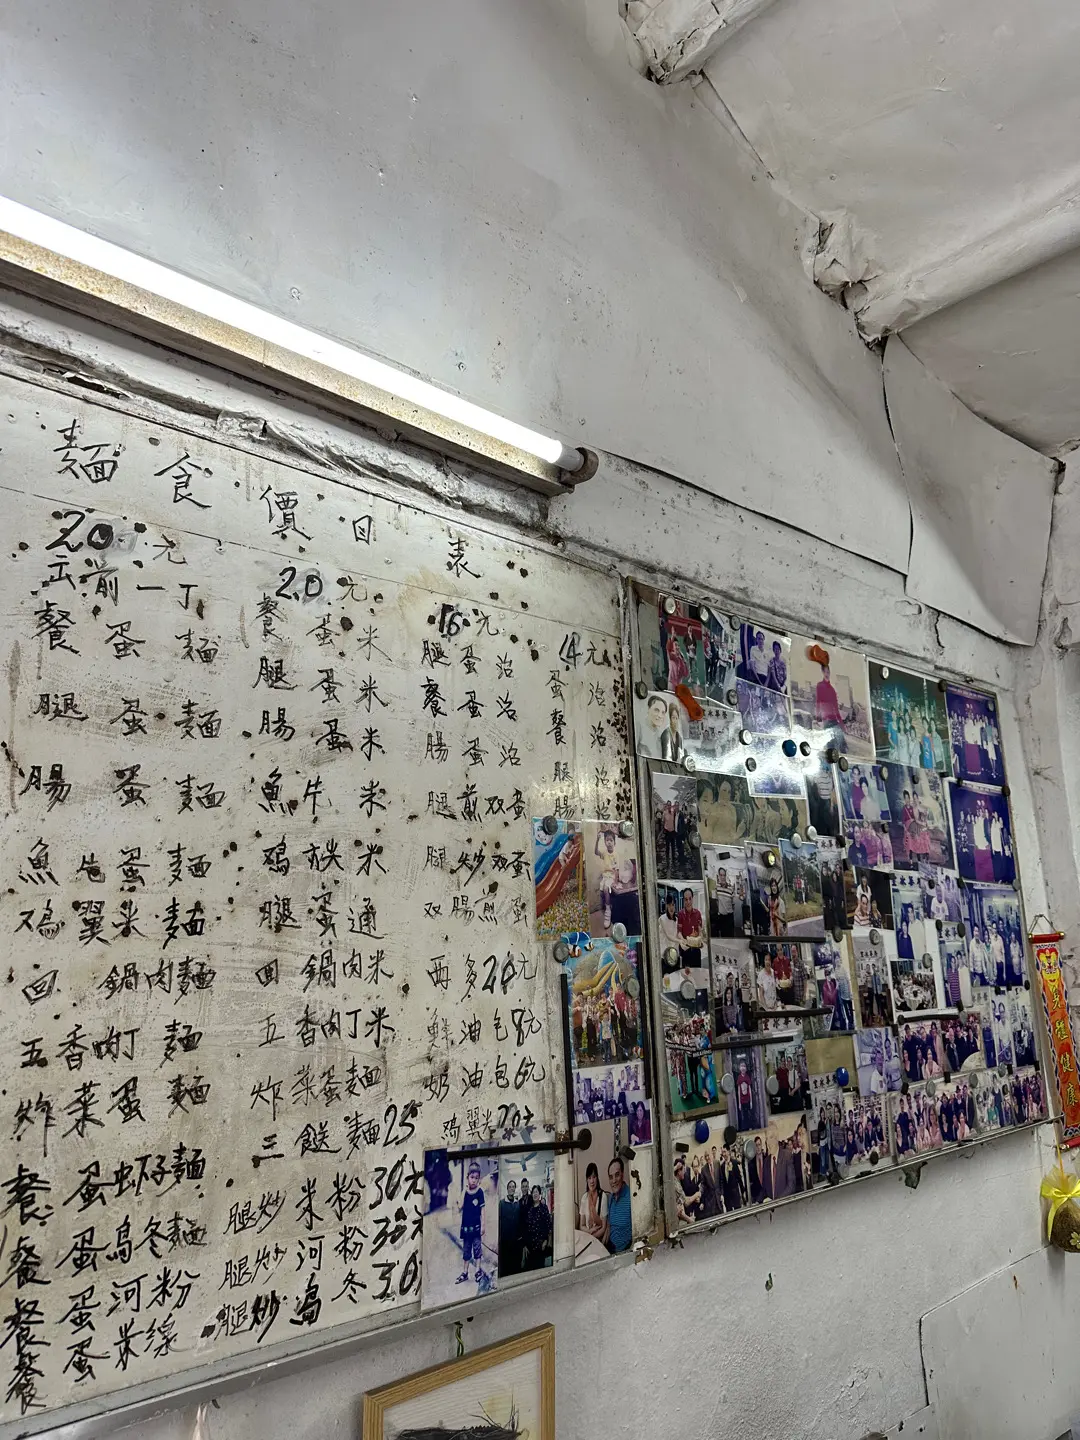 麵食價目表
20元
出前一丁
餐蛋麵
腿蛋麵
腸蛋麵
魚牛蛋麵
鸡翼米麵
回鍋肉麵
五香肉丁麵
炸菜蛋麵
餐蛋虾子麵
餐蛋烏冬麵
餐蛋河粉
餐蛋米線
20元
餐蛋米
腿蛋米
腸蛋米
魚牛米
鸡米
腿蛋通
回鍋肉米
五香肉丁米
炸菜蛋麵
三餸麵25
腿炒米粉30元
腿炒河粉30元
腿炒烏冬30
16元
腿蛋治
餐蛋治
腸蛋治
腿煎双蛋
腿炒双蛋
双腸煎蛋
西多20元
鮮油包8元
奶油包6元
鸡翼米20元
14元
蛋治
餐治
腿治
腸治